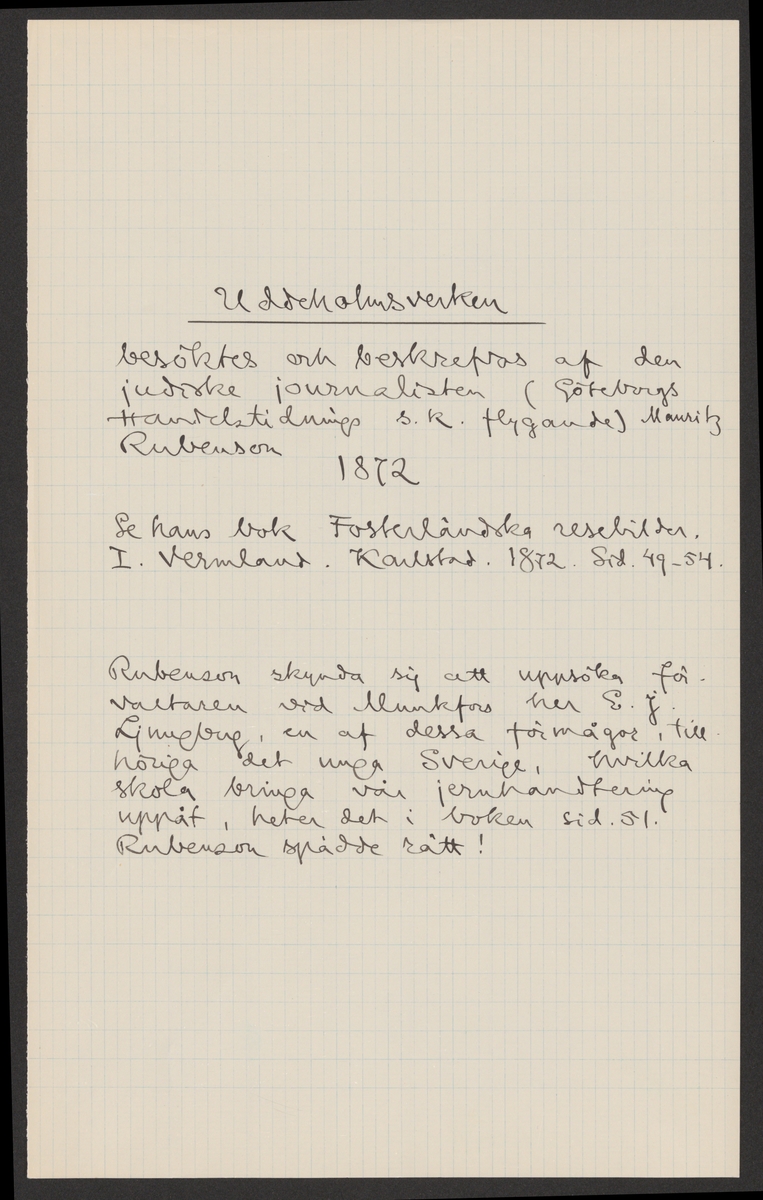 Uddeholmsverken
besöktes och beskrefvos af den
judiske journalisten (Göteborgs
Handelstidnings s.k. flygande) Mauritz
Rubenson
1872
Se hans bok Fosterländska resebilder.
I. Vermland. Karlstad. 1872. Sid. 49-54.
Rubenson skynda sig att uppsöka för-
valtaren vid Munkfors herr E. J.
Ljungberg, en af dessa förmågor, till-
höriga det unga Sverige, hvilka
skola bringa vår jernhandtering
uppåt, heter det i boken sid. 51.
Rubenson spådde rätt!